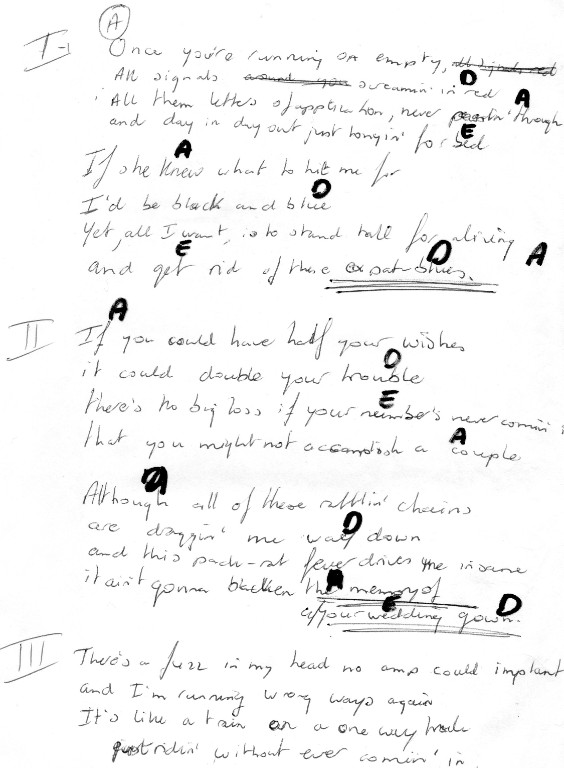 A
I-1 Once you're running on empty, all signals red
All signals around you screamin' in red
D
All them letters of application, never passin' through
A
and day in day out just longin' for bed
E
A
If she knew what to hit me for
D
I'd be black and blue
Yet, all I want, is to stand tall for a living
E D A
and get rid of these expat blues.
A
II If you could have half your wishes
D
it could double your trouble
E
there's no big loss if your number's never comin'
A
that you might not accomplish a couple
A
Although all of these rattlin' chains
D
are draggin' me way down
and this pack-rat fever drives me insane
A
it ain't gonna blacken the memory of
E D
of your wedding gown.
III There's a fuzz in my head no amp could implant
and I'm running wrong ways again
It's like a train on a one way track
just ridin' without ever comin' in